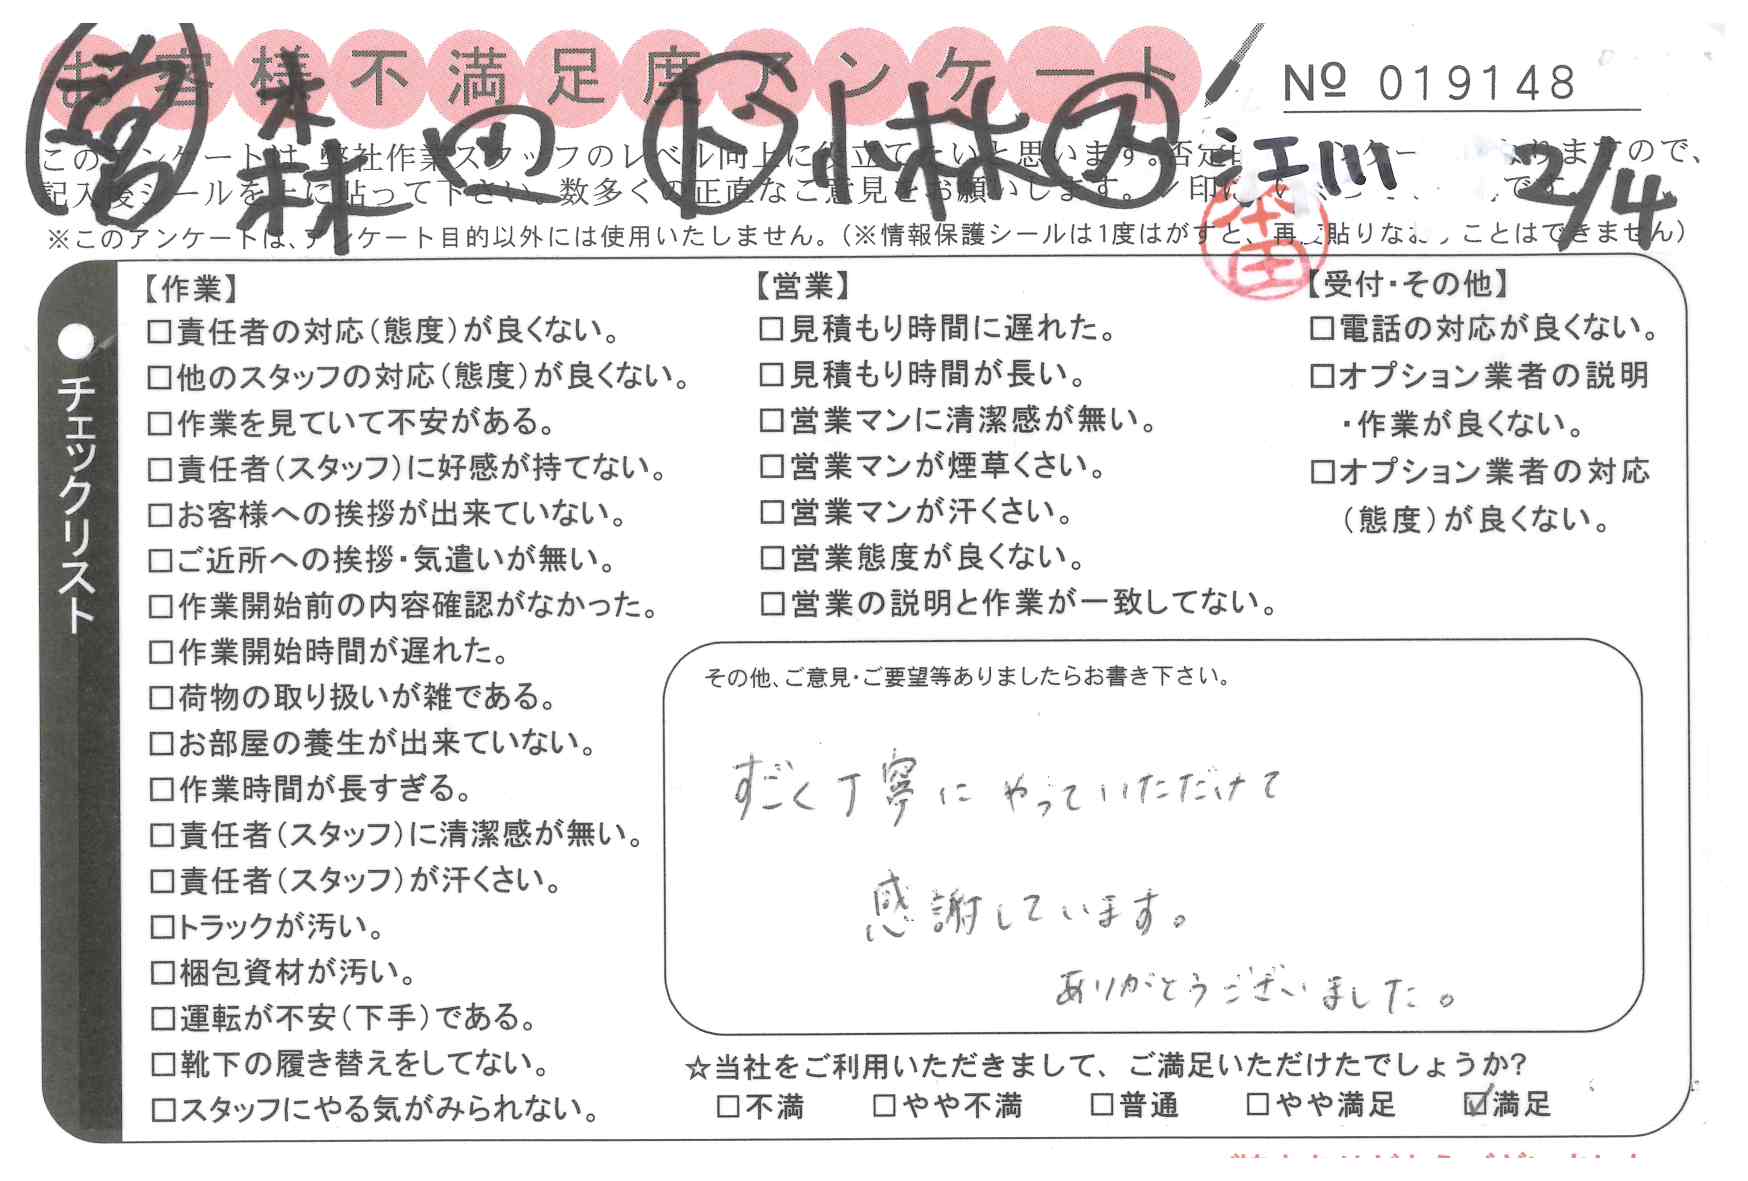 お客様不満足度アンケート
№ 019148
営 森田 ト 小林 ス 江川 2/4
このアンケートは、弊社作業スタッフのレベル向上に役立てたいと思います。否定 りますので、
記入後シールを上に貼って下さい。数多くの正直なご意見をお願いします。 です。
※このアンケートは、アンケート目的以外には使用いたしません。(※情報保護シールは1度はがすと、再度貼りなおすことはできません)
本田
チェックリスト
【作業】
□責任者の対応(態度)が良くない。
□他のスタッフの対応(態度)が良くない。
□作業を見ていて不安がある。
□責任者(スタッフ)に好感が持てない。
□お客様への挨拶が出来ていない。
□ご近所への挨拶・気遣いが無い。
□作業開始前の内容確認がなかった。
□作業開始時間が遅れた。
□荷物の取り扱いが雑である。
□お部屋の養生が出来ていない。
□作業時間が長すぎる。
□責任者(スタッフ)に清潔感が無い。
□責任者(スタッフ)が汗くさい。
□トラックが汚い。
□梱包資材が汚い。
□運転が不安(下手)である。
□靴下の履き替えをしてない。
□スタッフにやる気がみられない。
【営業】
□見積もり時間に遅れた。
□見積もり時間が長い。
□営業マンに清潔感が無い。
□営業マンが煙草くさい。
□営業マンが汗くさい。
□営業態度が良くない。
□営業の説明と作業が一致してない。
【受付・その他】
□電話の対応が良くない。
□オプション業者の説明
・作業が良くない。
□オプション業者の対応
(態度)が良くない。
その他、ご意見・ご要望等ありましたらお書き下さい。
すごく丁寧にやっていただけて
感謝しています。
ありがとうございました。
☆当社をご利用いただきまして、ご満足いただけたでしょうか?
□不満 □やや不満 □普通 □やや満足 ☑満足